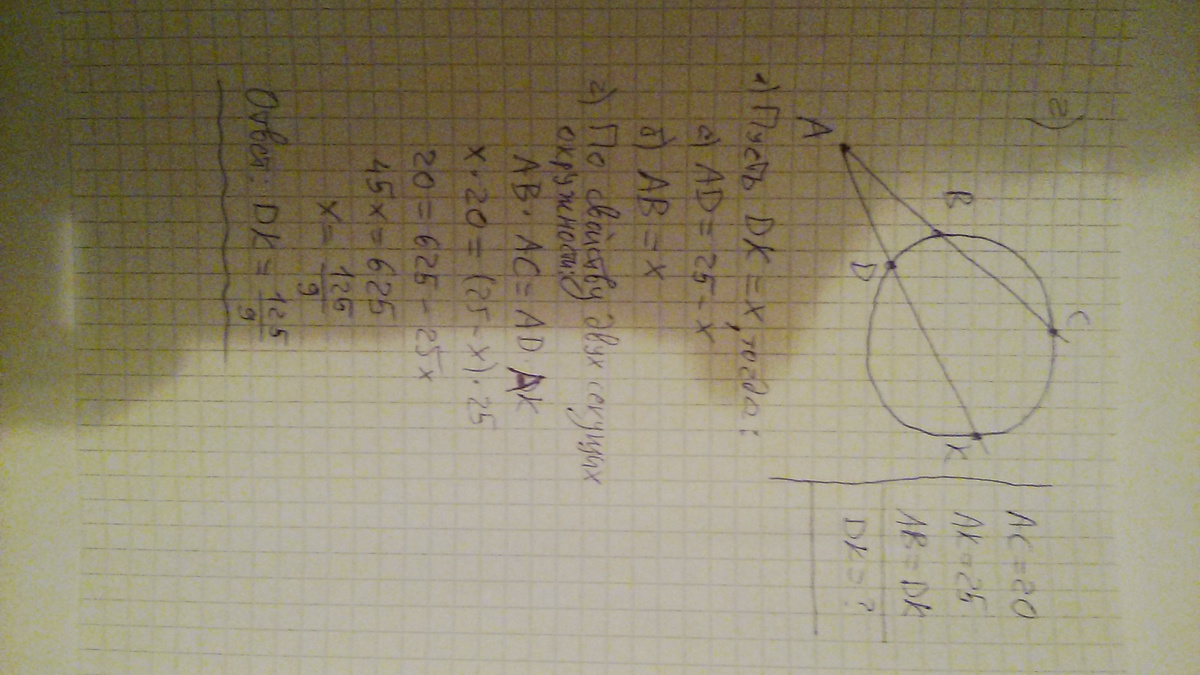 2)
A
B
C
D
K
AC = 20
AK = 25
AB = DK
DK = ?
1) Пусть DK = x, тогда:
а) AD = 25 - x
б) AB = x
2) По свойству двух секущих
окружности
AB · AC = AD · AK
x · 20 = (25 - x) · 25
20 = 625 - 25x
45x = 625
x = 125/9
Ответ: DK = 125/9